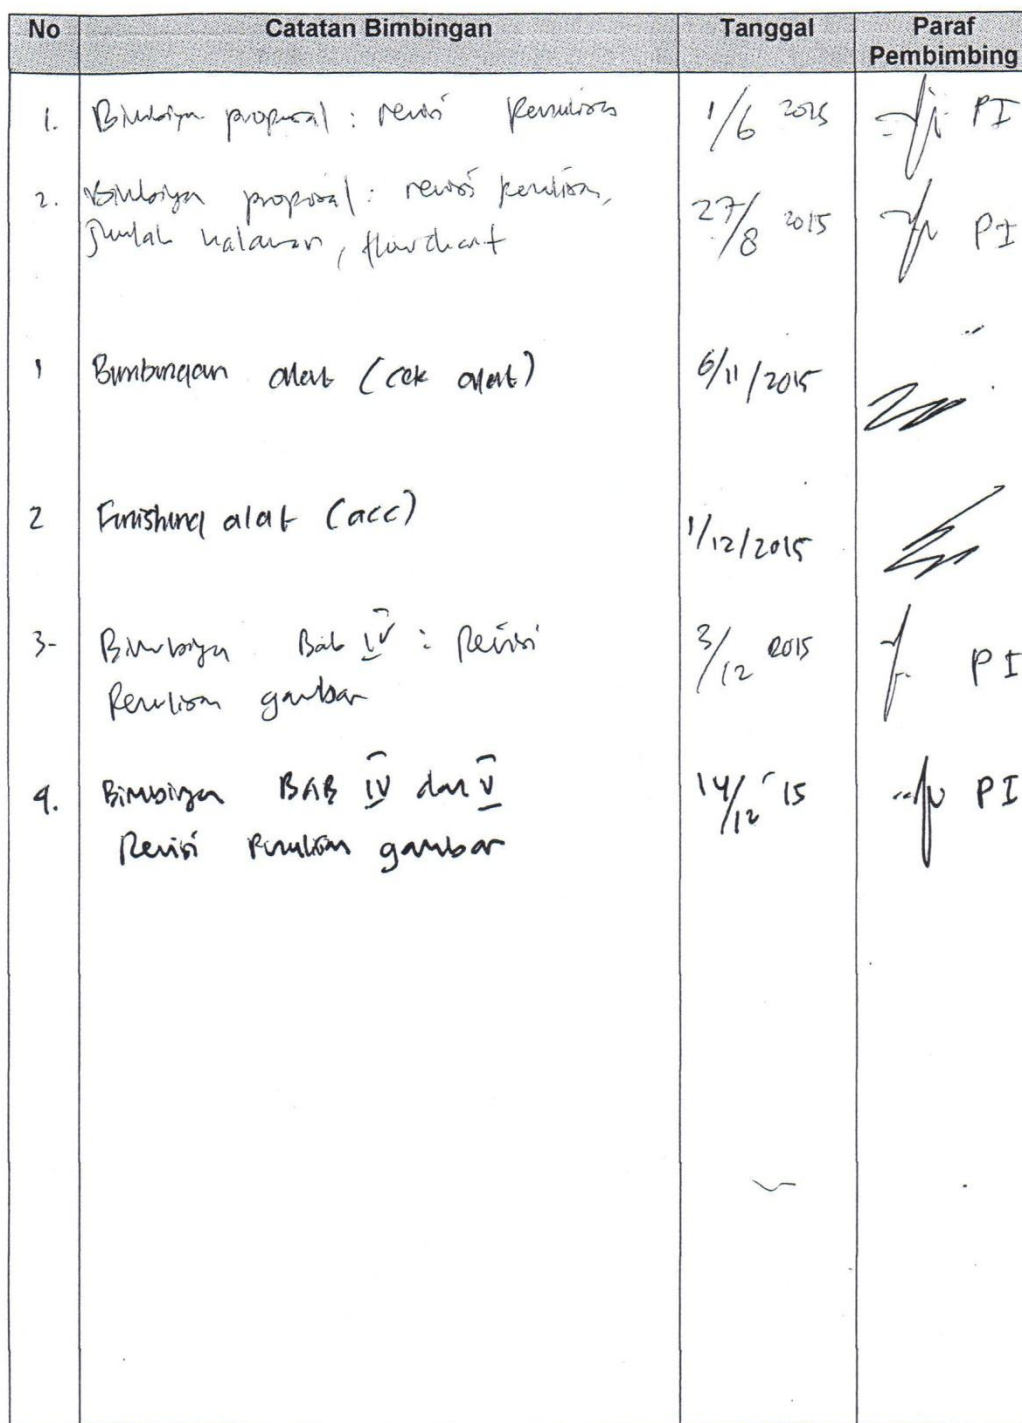 No Catatan Bimbingan Tanggal Paraf Pembimbing
1. Bimbingan proposal : revisi Penulisan 1/6 2015 PI
2. Bimbingan proposal : revisi penulisan, 27/8 2015 PI
Jumlah halaman, flowchart
1 Bimbingan alat (cek alat) 6/11/2015
2 Finishing alat (acc) 1/12/2015
3- Bimbingan Bab IV : Revisi 3/12 2015 PI
Penulisan gambar
4. Bimbingan BAB IV dan V 14/12 '15 PI
Revisi Penulisan gambar